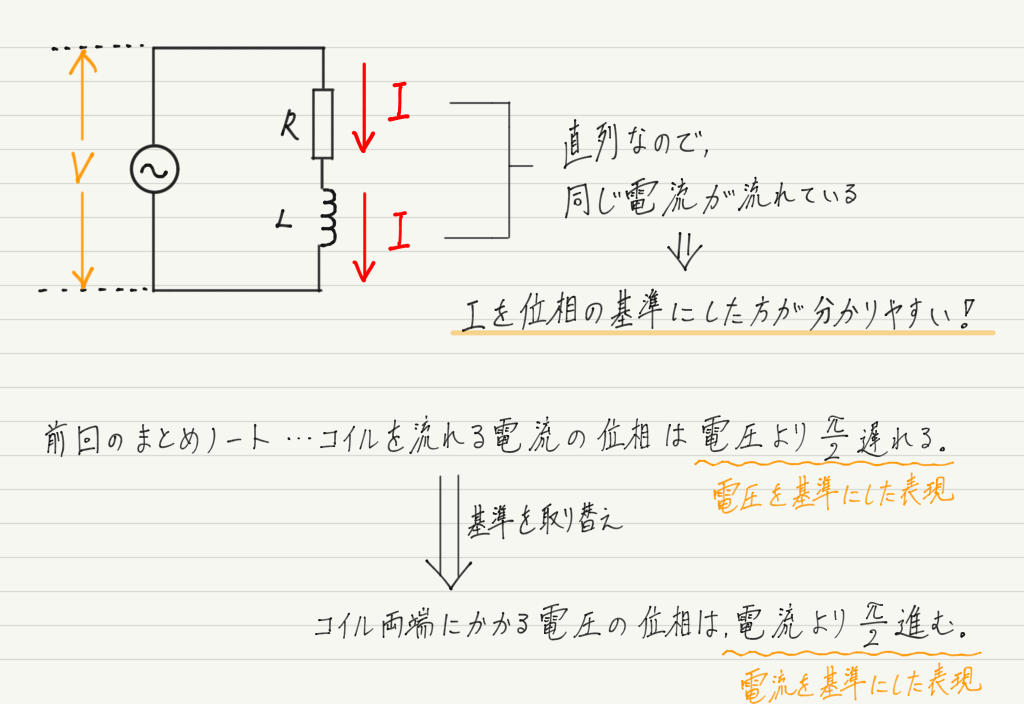 V
R
I
L
I
直列なので,
同じ電流が流れている
⇓
Iを位相の基準にした方が分かりやすい!
前回のまとめノート…コイルを流れる電流の位相は電圧よりπ/2遅れる.
電圧を基準にした表現
基準を取り替え
コイル両端にかかる電圧の位相は,電流よりπ/2進む.
電流を基準にした表現